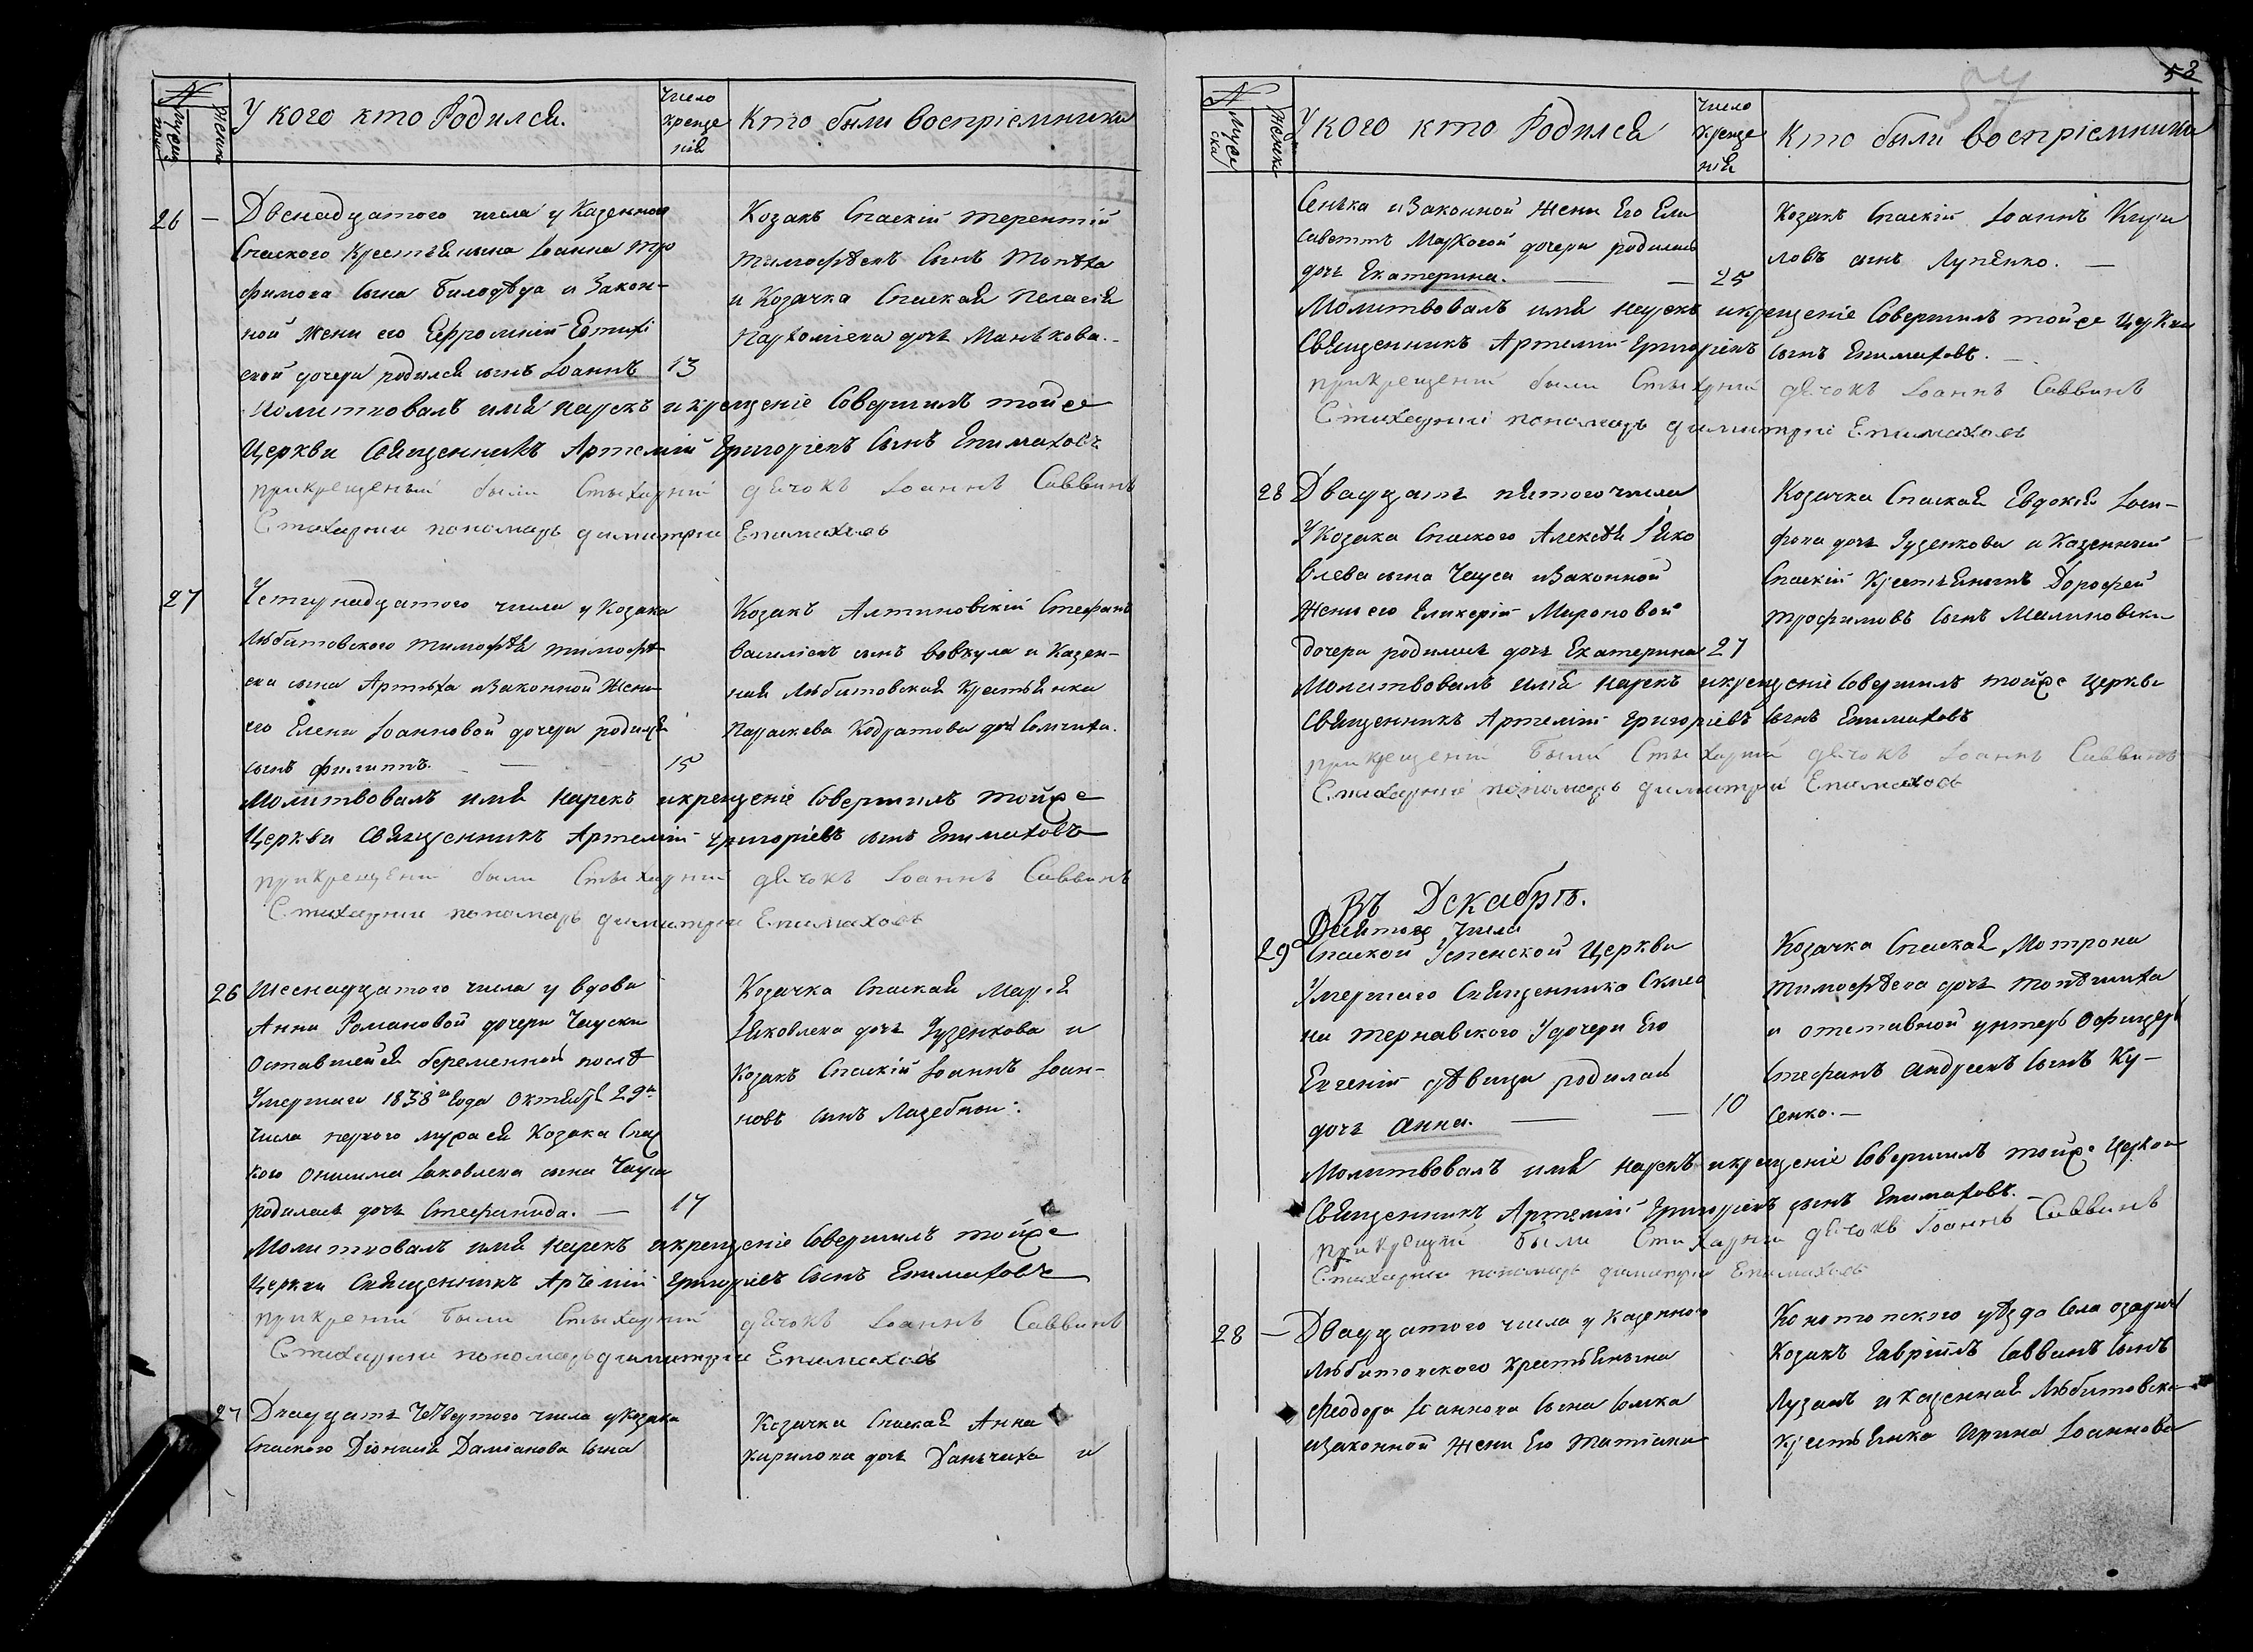 N
Мужеска
Женска
У кого кто Родился.
Число
креще
нія
Кто были воспріемники
26 — Двенадцатого числа у Казенного
Спаского Крестьянина Іоанна Тро
фимова сына Билодѣда и Закон-
ной жены его Ефросиніи Евтихі
евой дочери родился сынъ Іоаннъ 13
Козакъ Спаскій Терентій
Тимофѣевъ сынъ Топѣха
и Козачка Спаская Пелагія
Пархоміева дочь Манькова.
Молитвовалъ имя нарекъ и крещеніе Совершилъ тойже
Церкви Священникъ Артемій Григоріевъ Сынъ Епимаховъ
прикрещеныи были Стыхарній дячокъ Іоаннъ Саввинъ
Стихарни пономарь димитрии Епимаховъ
27 Четырнадцатого числа у Козака
Любитовского Тимофѣя Тимофѣ
ева сына Артюха изаконной Жены
его Елены Іоанновой дочери родился
сынъ филиппъ. — 15
Козакъ Алтиновскій Стефанъ
Василіевъ сынъ Вовкула и Казен-
ная Любитовская Крестьянка
Параскева Кодратова дочь
Молитвовалъ имя нарекъ икрещеніе Совершилъ тойже
Церкви Священникъ Артемій Григоріевъ сынъ Епимаховъ
прикрещени были Стыхарній дячокъ Іоаннъ Саввинъ
Стихарни пономарь димитрии Епимаховъ
26 Шеснадцатого числа у вдовы
Анны Романовой дочери Чауски
Оставшейся беременной послѣ
Умершаго 1838 года Октября 29
числа первого мужа ея Козака Спас
кого Онисима Іаковлева сына Чауса
родилась дочь Стефанида. — 17
Козачка Спаская Марія
Яковлева дочь Гузенкова и
Козакъ Спаскій Іоаннъ Іоан-
новъ сынъ Лазебной.
Молитвовалъ имя нарекъ икрещеніе Совершилъ тойже
Церкви Священникъ Артемій Григоріевъ Сынъ Епимаховъ
прикрении были Стыхарній дячокъ Іоаннъ Саввинъ
Стихарни пономарь димитрии Епимаховъ
27 Двадцать Четвертого числа у Козака
Спаского Діонисія Даміанова Сына
Козачка Спаская Анна
Кирилова дочь Даньчиха и
58
57
N
Мужеска
Женска
У кого кто Родился
Число
Креще
нія
Кто были воспріемники
Сенька изаконной Жены Его Ели
саветы Марковой дочери родилась
дочь Екатерина. — 25
Козакъ Спаскій Іоаннъ Кири
ловъ сынъ Лупенко. —
Молитвовалъ имя нарекъ икрещеніе Совершилъ тойже Церкви
Священникъ Артемій Григоріевъ сынъ Епимаховъ.
прикрещении были Стыхрни дячокъ Іоаннъ Саввинъ
Стихарниі пономарь димитриі Епимаховъ
28 Двадцать пятого числа
У Козака Спаского Алексѣя Яко
влева сына Чауса изаконной
Жены его Гликеріи Мироновой
дочери родилась дочь Екатерина 27
Козачка Спаская Евдокія
дочь Гузенкова и Казенный
Спаскій Крестьянинъ Дорофей
Трофимовъ сынъ
Молитвовалъ имя нарекъ икрещеніе Совершилъ тойже Церкви
Священникъ Артемій Григоріевъ Сынъ Епимаховъ
прикрещении были Стыхарній дячокъ Іоаннъ Саввинъ
Стихарніе пономарь димитрии Епимаховъ
Въ Декабрѣ.
Девятого Числа
29 Спаской Успенской Церкви
Умершаго Священника
Тернавского У дочери Его
Евгеніи дѣвицы родилась
дочь Анна. — 10
Козачка Спаская Мотрона
Тимофѣева дочь
и отставной унтеръ Офицеръ
Стефанъ Андреевъ Сынъ Ку-
сенко. —
Молитвовалъ имя нарекъ икрещеніе Совершилъ тойже Церкви
Священникъ Артемій Григоріевъ сынъ Епимаховъ.
прикрещени были Стихарни дячокъ Іоаннъ Саввинъ
Стихарни пономарь димитри Епимаховъ
28 — Двадцатого числа у Казенного
Любитовского крестьянина
Феодора Іоаннова Сына
изаконной жены Его Татіаны
Конотопского уѣзда Села
Козакъ Гавріилъ Саввинъ Сынъ
Лузанъ и казенная Любитовска
Крестьянка Ирина Іоаннова